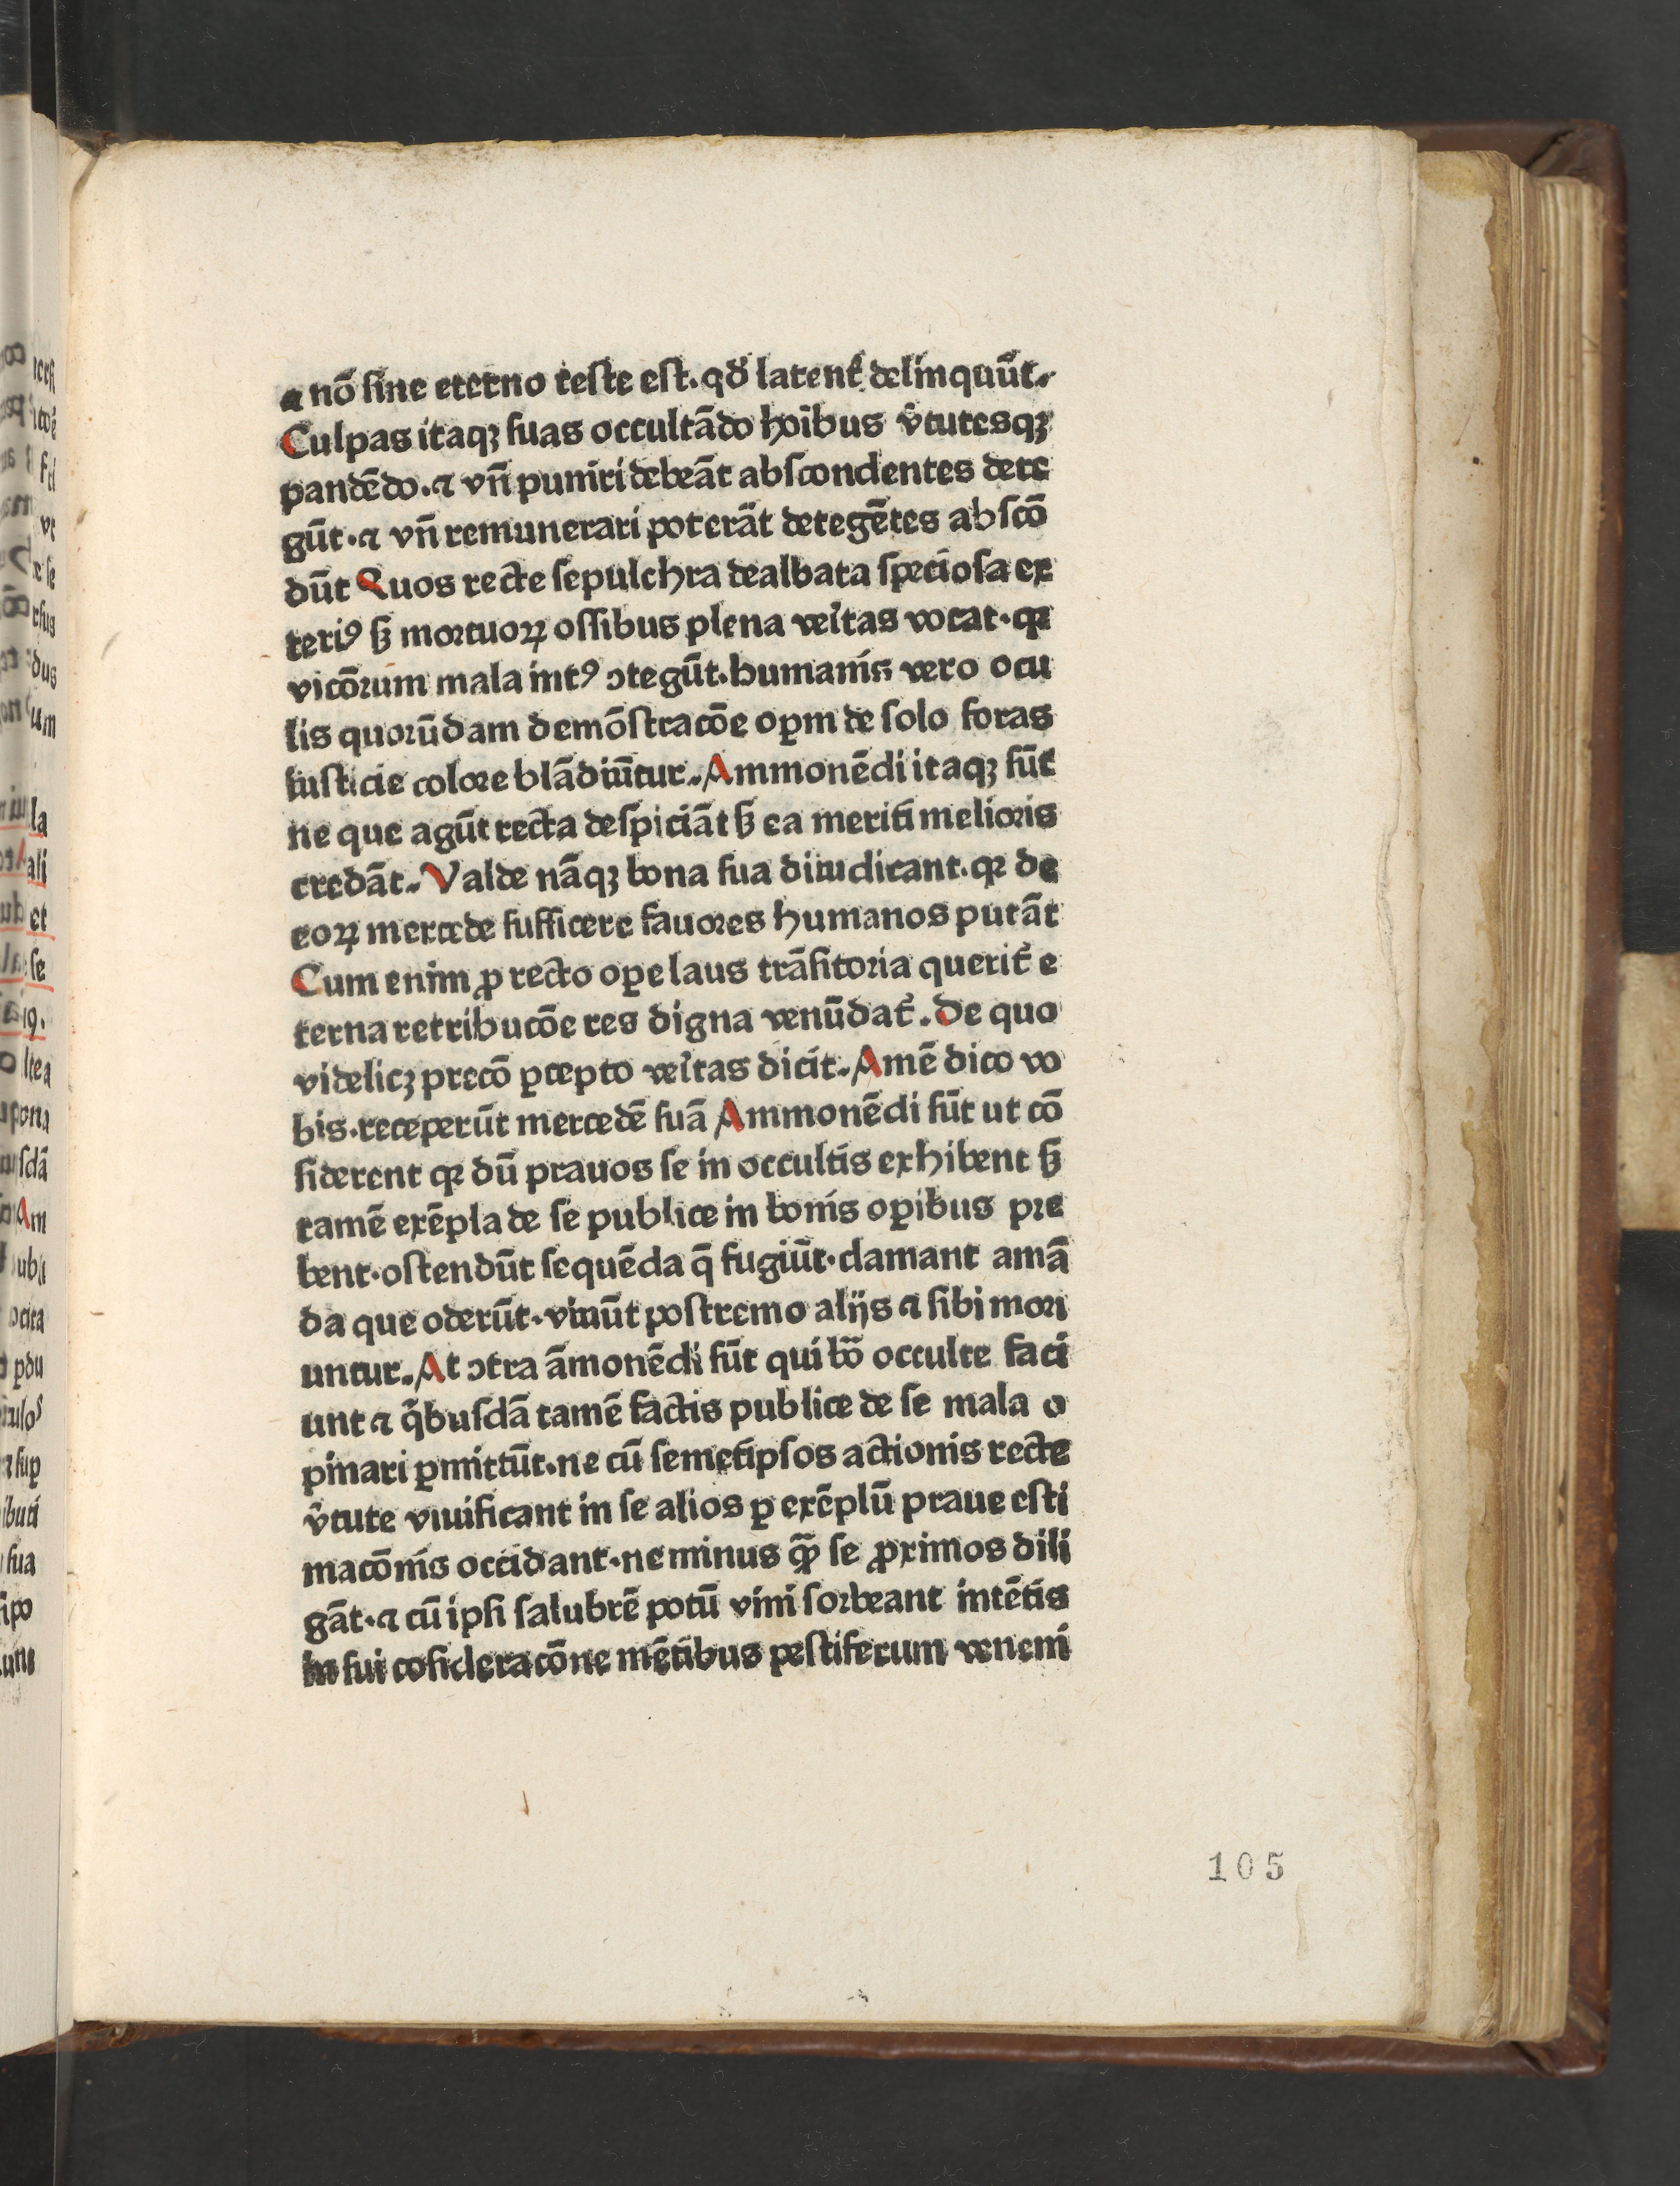 ⁊ nō ſine eterno teſte eſt. qđ latent᷑ delinquūt.
Culpas itaqꝫ ſuas occultādo hoı̄bus v̄tuteſqꝫ
pandēdo. ⁊ vn̄ puniri debeāt abſcondentes dete
gūt. ⁊ vn̄ remunerari poterāt detegētes abſcō
dūt Quos recte ſepulchra dealbata ſpecioſa ex
teriꝰ ſꝫ mortuoꝝ oſſibus plena veritas vocat. qꝛ
vicōrum mala intꝰ ↄtegūt. humanis vero ocu
lis quorūdam demōſtracōe oꝑm de ſolo foras
iuſticie colore blādiūtur. Ammonēdi itaqꝫ ſūt
ne que agūt recta deſpiciāt ſꝫ ea meriti melioris
credāt. Valde nāqꝫ bona ſua diiudicant. qꝛ de
eoꝝ mercede ſufficere fauores humanos putāt
Cum enim ꝓ recto oꝑe laus trāſitoria querit᷑ e
terna retribucōe res digna venūdat᷑. De quo
videlicꝫ precō ꝑcepto veritas dicit. Amē dico vo
bis. receperūt mercedē ſuā Ammonēdi ſūt ut cō
ſiderent qꝛ dū prauos ſe in occultis exhibent ſꝫ
tamē exēpla de ſe publice in bonis oꝑibus pre
bent. oſtendūt ſequēda q̄ fugiūt. clamant amā
da que oderūt. viuūt poſtremo alijs ⁊ ſibi mori
untur. At ↄtra āmonēdi ſūt qui bō occulte faci
unt ⁊ q̄buſdā tamē factis publice de ſe mala o
pinari ꝑmittūt. ne cū ſemetipſos actionis recte
v̄tute viuificant in ſe alios ꝑ exēplū praue eſti
macōnis occidant. ne minus qꝫ̄ ſe ꝓximos dili
gāt. ⁊ cū ipſi ſalubrē potū vini ſorbeant intētis
in ſui coſideracōne mētibus peſtiferum veneni
105